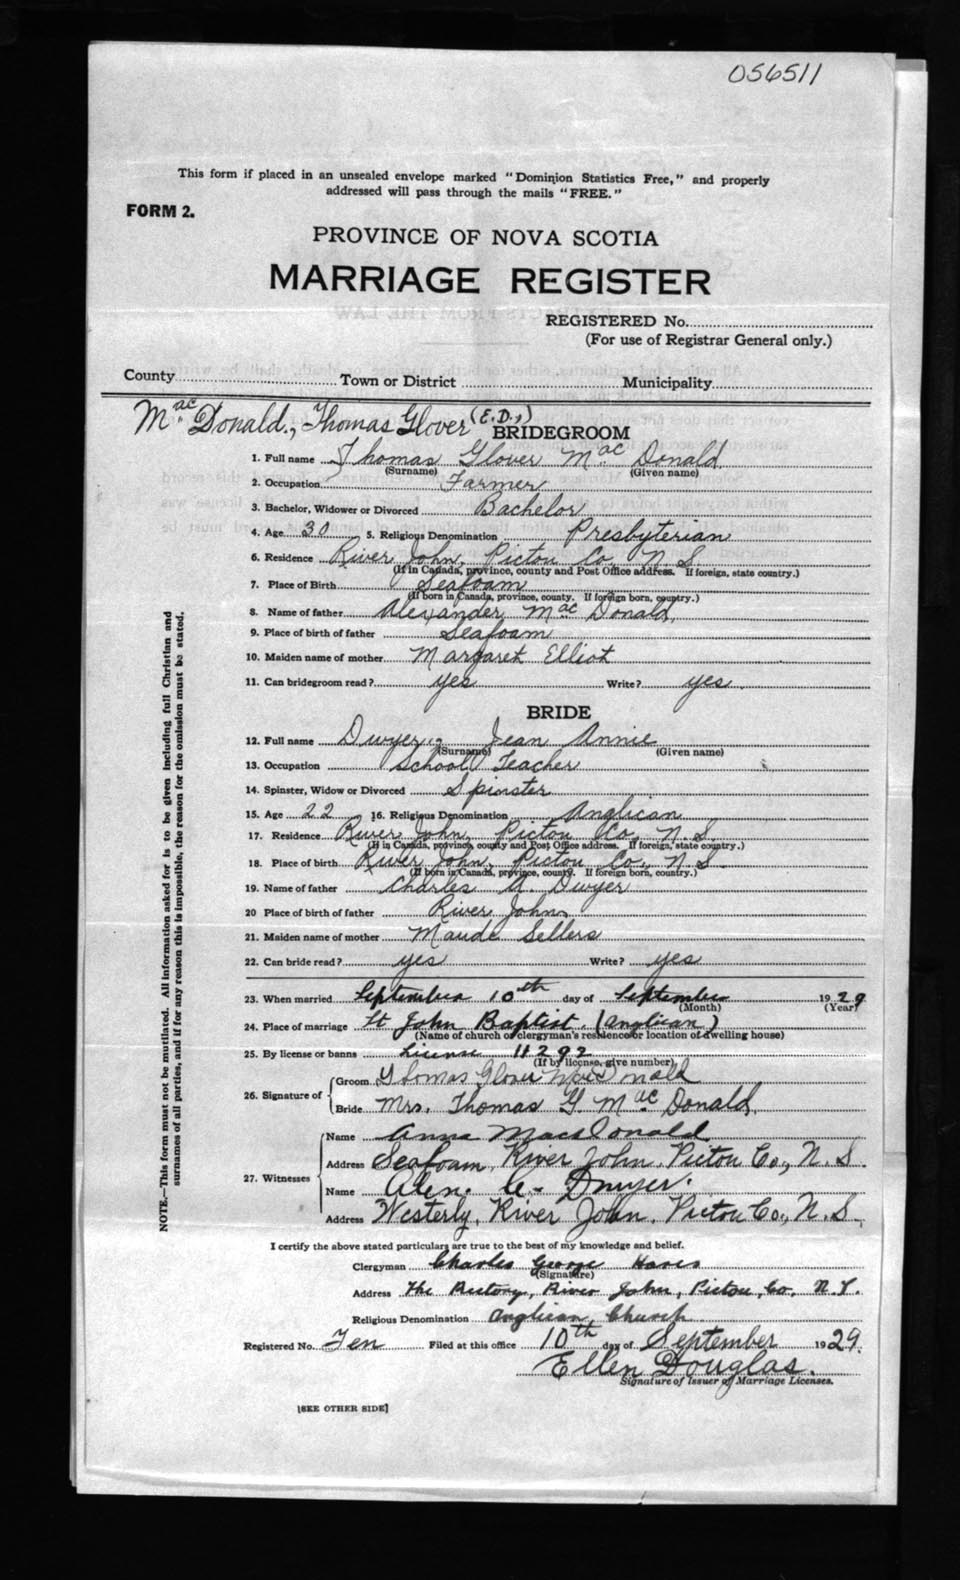 056511
This form if placed in an unsealed envelope marked "Dominion Statistics Free," and properly
addressed will pass through the mails "FREE."
FORM 2.
PROVINCE OF NOVA SCOTIA
MARRIAGE REGISTER
REGISTERED No.
(For use of Registrar General only.)
County Town or District Municipality
MacDonald, Thomas Glover (E.D.)
BRIDEGROOM
1. Full name Thomas Glover MacDonald
(Surname) (Given name)
2. Occupation Farmer
3. Bachelor, Widower or Divorced Bachelor
4. Age 30 5. Religious Denomination Presbyterian
6. Residence River John, Pictou Co., N.S.
(If in Canada, province, county and Post Office address. If foreign, state country.)
7. Place of Birth Seafoam
(If born in Canada, province, county. If foreign born, country.)
8. Name of father Alexander MacDonald
9. Place of birth of father Seafoam
10. Maiden name of mother Margaret Elliot
11. Can bridegroom read? yes Write? yes
BRIDE
12. Full name Dwyer, Jean Annie
(Surname) (Given name)
13. Occupation School Teacher
14. Spinster, Widow or Divorced Spinster
15. Age 22 16. Religious Denomination Anglican
17. Residence River John, Pictou Co., N.S.
(If in Canada, province, county and Post Office address. If foreign, state country.)
18. Place of birth River John, Pictou Co., N.S.
(If born in Canada, province, county. If foreign born, country.)
19. Name of father Charles A. Dwyer
20 Place of birth of father River John
21. Maiden name of mother Maude Sellers
22. Can bride read? yes Write? yes
23. When married September 10th day of September 1929
(Month) (Year)
24. Place of marriage St John Baptist. (Anglican)
(Name of church or clergyman's residence or location of dwelling house)
25. By license or banns License 11292
(If by license, give number)
26. Signature of Groom Thomas Glover MacDonald
Bride Mrs. Thomas G. MacDonald
27. Witnesses Name Anna MacDonald
Address Seafoam, River John, Pictou Co., N.S.
Name Alen. C. Dwyer.
Address Westerly, River John, Pictou Co., N.S.
I certify the above stated particulars are true to the best of my knowledge and belief.
Clergyman Charles George
(Signature)
Address The Rectory, River John, Pictou, Co. N.S.
Religious Denomination Anglican Church
Registered No. Ten Filed at this office 10th day of September 1929.
Ellen Douglas.
Signature of Issuer of Marriage Licenses.
[SEE OTHER SIDE]
NOTE.—This form must not be mutilated. All information asked for is to be given including full Christian and
surnames of all parties, and if for any reason this is impossible, the reason for the omission must be stated.